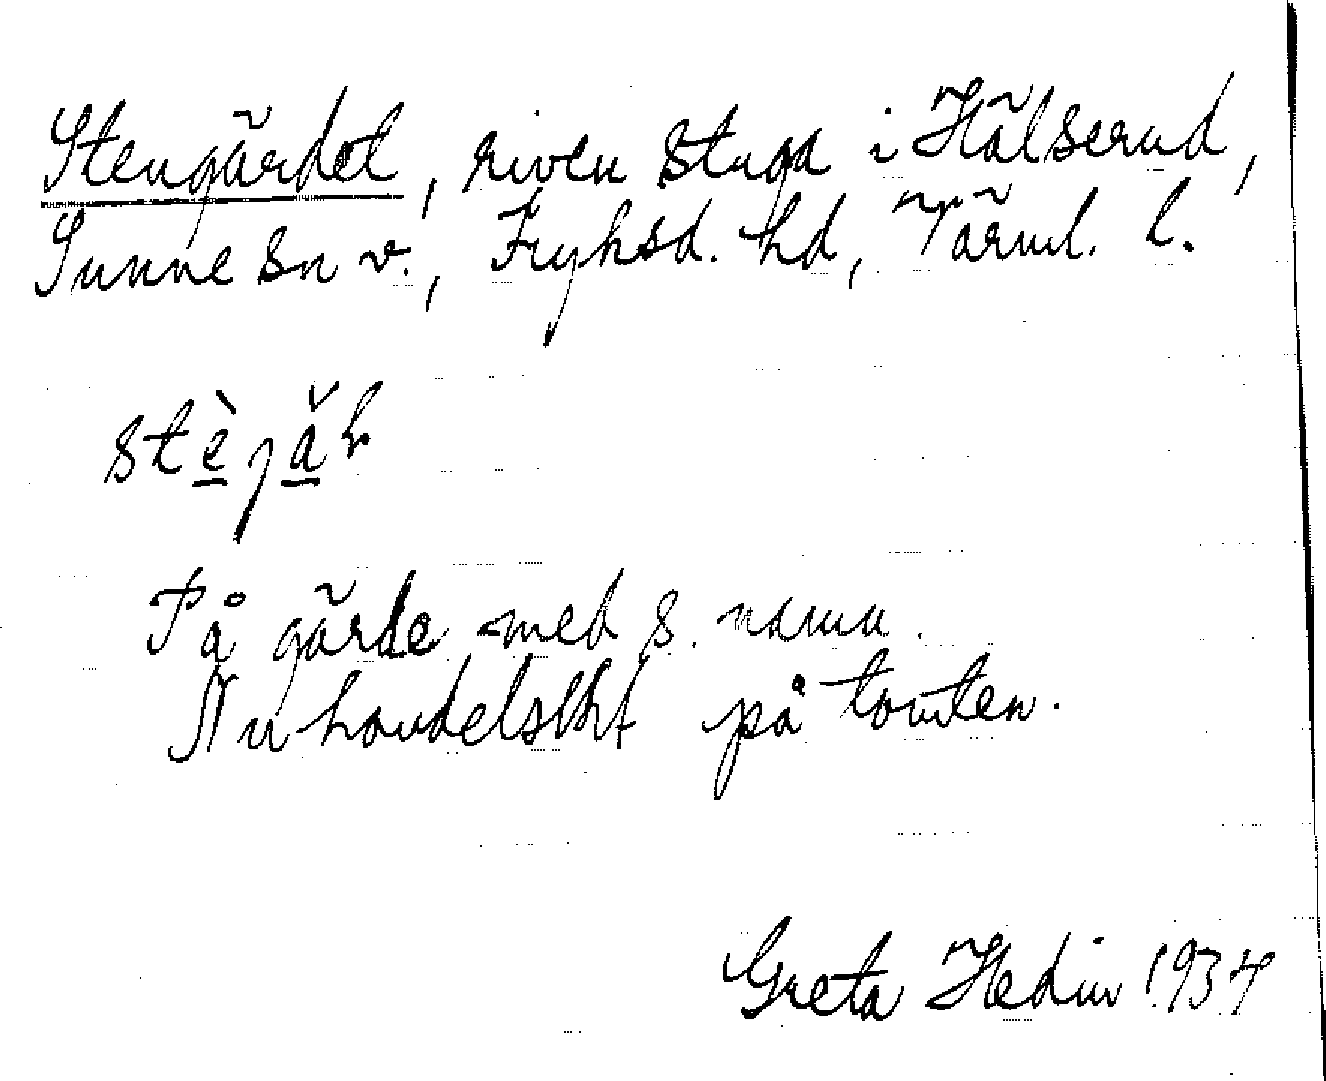 Stengärdet, riven stuga i Hälserud,
Sunne sn v., Fryksd. hd, Värml. l.
På gärde med s. namn.
Nu handelsträ på tomten.
Greta Hedin 1934